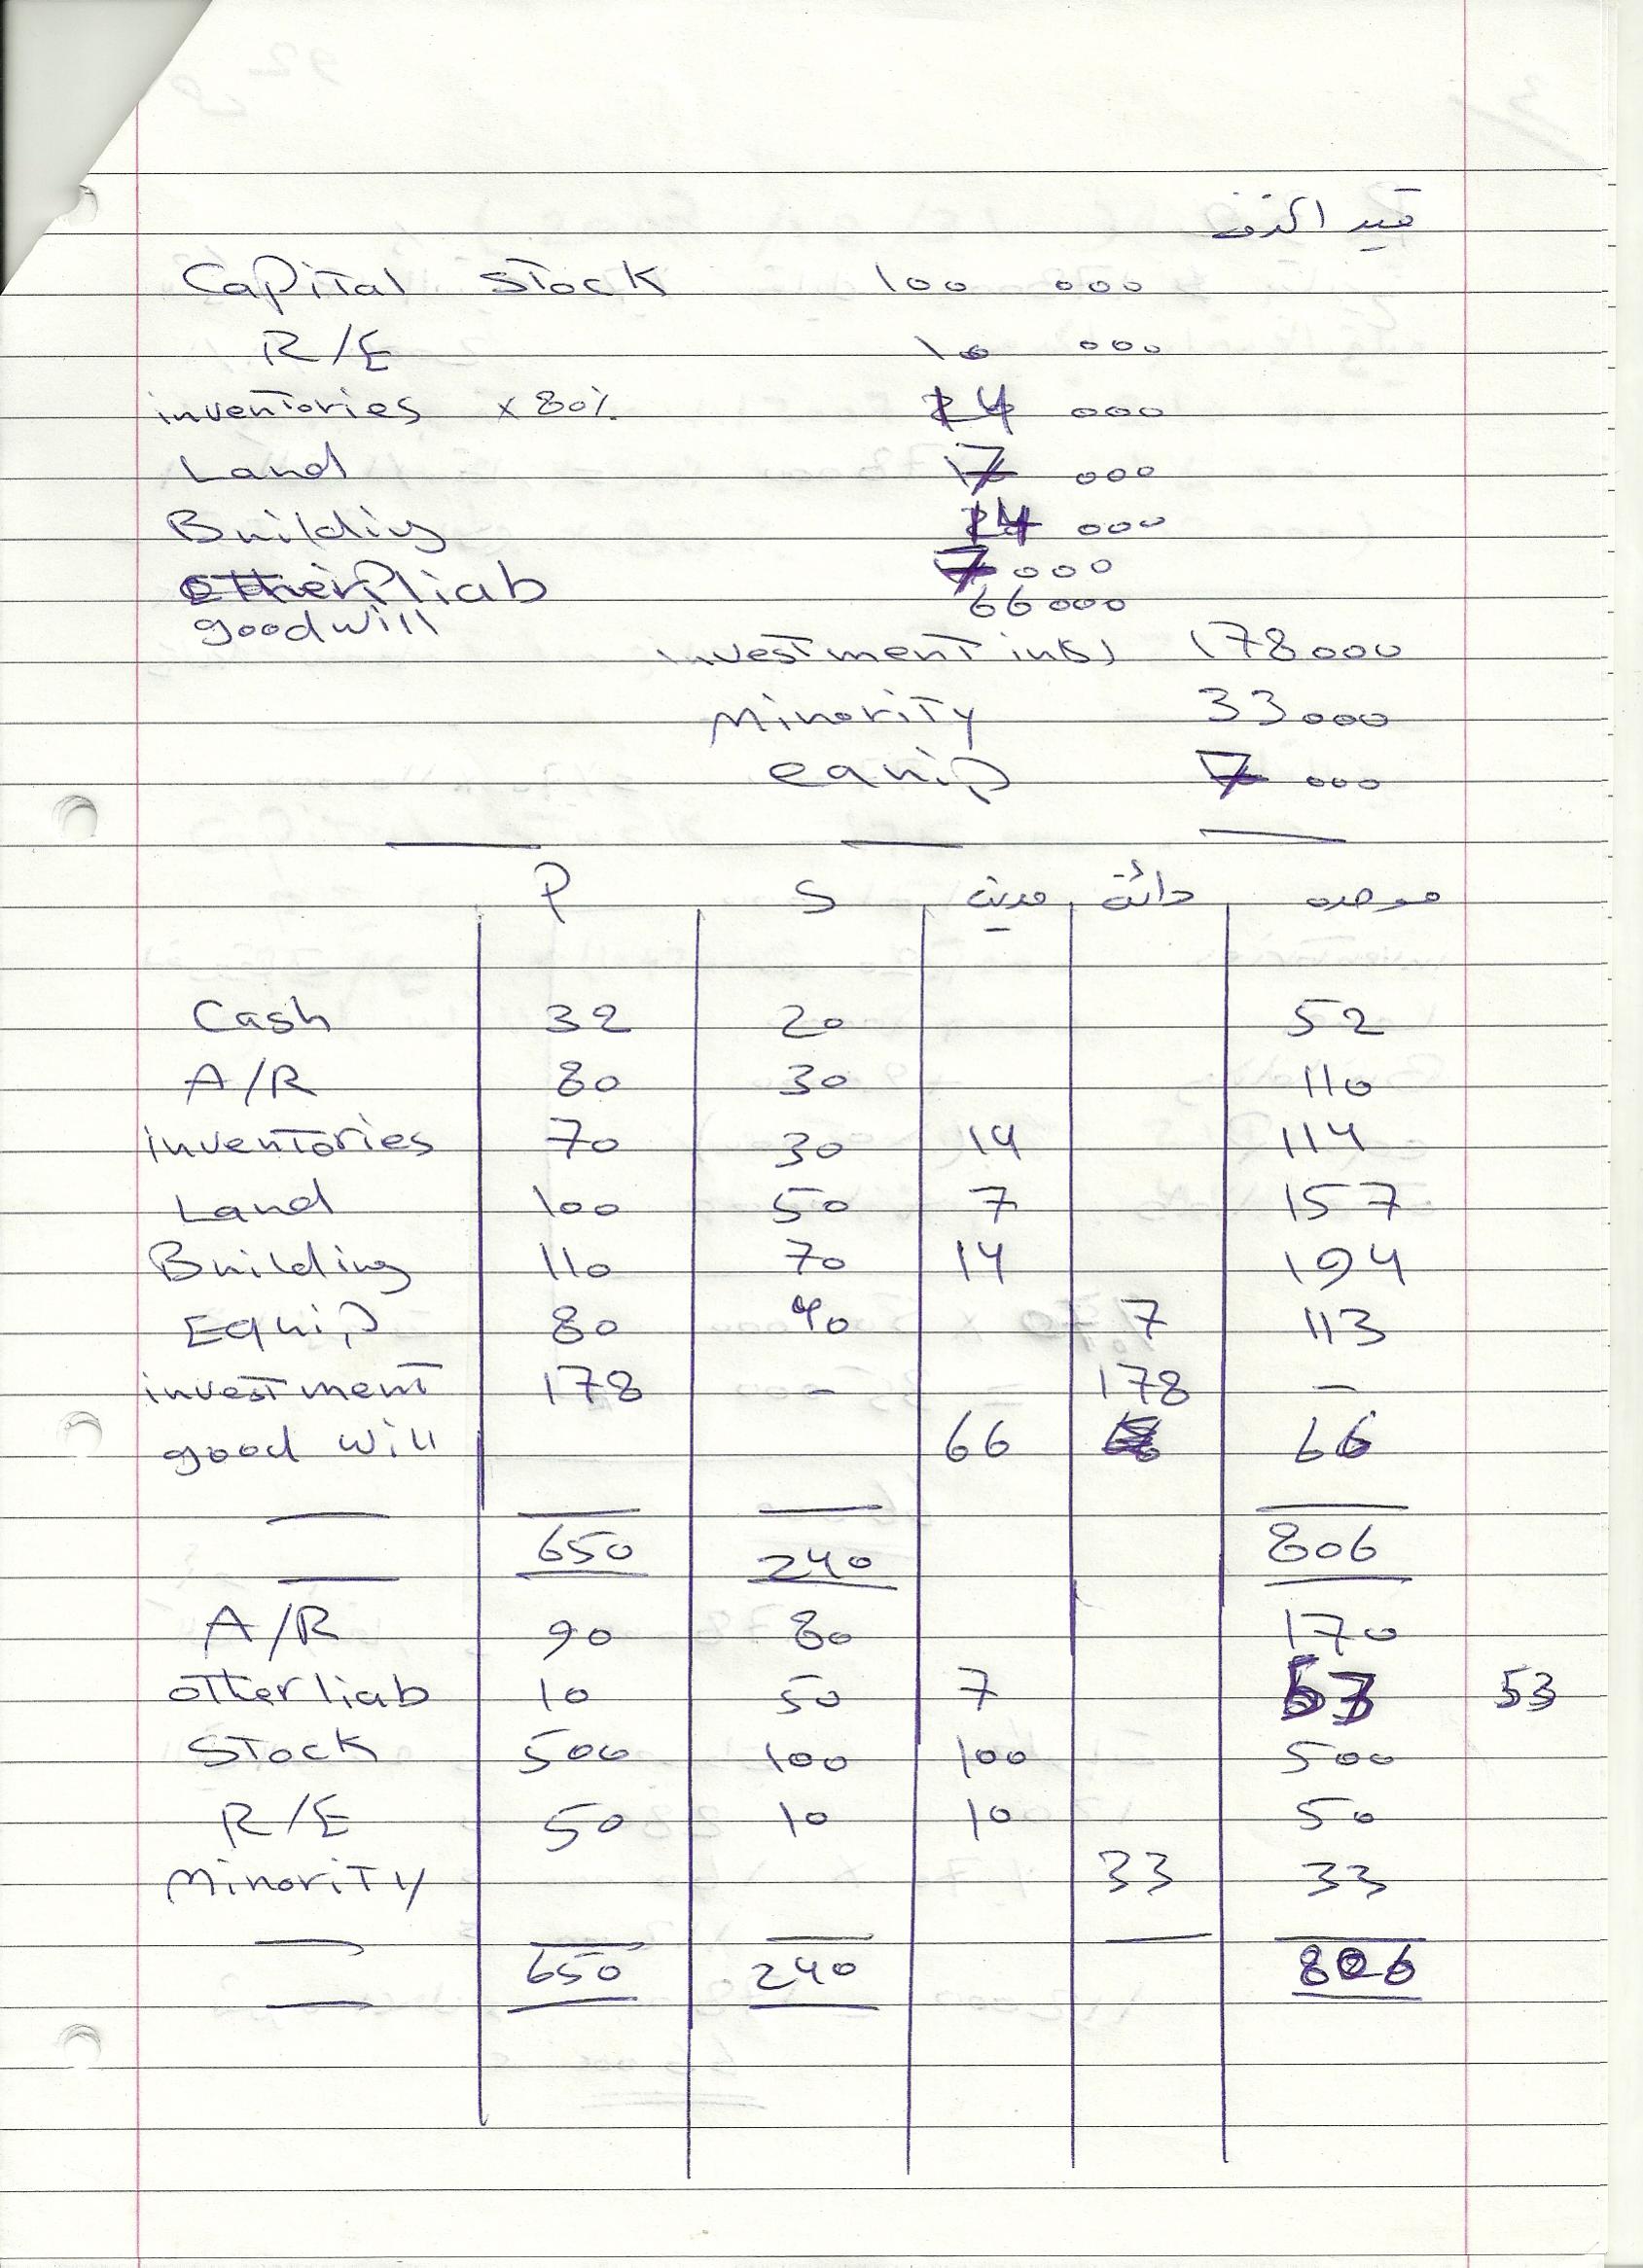 قيد الحذف
Capital stock 100 000
R/E 10 000
inventories x 80% 14 000
Land 7 000
Building 14 000
other liab 7 000
goodwill 66 000
investment in (S) 178 000
Minority 33 000
equip 7 000
P S مدينة دائنة موحدة
Cash 32 20 52
A/R 80 30 110
inventories 70 30 14 114
Land 100 50 7 157
Building 110 70 14 194
Equip 80 40 7 113
investment 178 - 178 -
good will 66 66
650 240 806
A/R 90 80 170
other liab 10 50 7 53 53
Stock 500 100 100 500
R/E 50 10 10 50
Minority 33 33
650 240 806